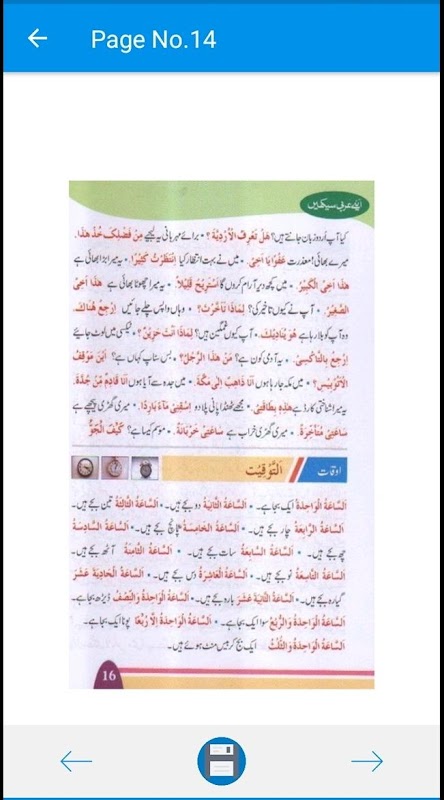 Page No.14
ایئے عربی سیکھیں
کیا آپ اُردو زبان جانتے ہیں؟ هَلْ تَعْرِفُ الْأُرْدِيَّةَ ؟ • برائے مہربانی یہ لیجیے مِنْ فَضْلِكَ خُذْ هٰذَا.
میرے بھائی! معذرت عَفْوًا يَا اَخِيْ. • میں نے بہت انتظار کیا اِنْتَظَرْتُ كَثِيْرًا. • یہ میرا بڑا بھائی ہے
هٰذَا اَخِي الْكَبِيْرُ. • میں کچھ دیر آرام کروں گا اَسْتَرِيْحُ قَلِيْلًا. • یہ میرا چھوٹا بھائی ہے هٰذَا اَخِي
الصَّغِيْرُ. • آپ نے کیوں تاخیر کی؟ لِمَاذَا تَأَخَّرْتَ؟ • وہاں واپس چلے جائیں اِرْجِعْ هُنَاكَ.
وہ آپ کو بلا رہا ہے هُوَ يُنَادِيْكَ. • آپ کیوں غمگین ہیں؟ لِمَاذَا اَنْتَ حَزِيْنٌ؟ • ٹیکسی میں لوٹ جائیے
اِرْجِعْ بِالتَّاكْسِيْ. • یہ آدمی کون ہے؟ مَنْ هٰذَا الرَّجُلُ؟ • بس سٹاپ کہاں ہے؟ اَيْنَ مَوْقِفُ
الْاُتُوْبِيْسِ؟ • میں مکہ جا رہا ہوں اَنَا ذَاهِبٌ اِلٰى مَكَّةَ • میں جدہ سے آیا ہوں اَنَا قَادِمٌ مِنْ جُدَّةَ.
یہ میرا شناختی کارڈ ہے هٰذِهٖ بِطَاقَتِيْ. • مجھے ٹھنڈا پانی پلا دو اِسْقِنِيْ مَاءً بَارِدًا. • میری گھڑی پیچھے ہے
سَاعَتِيْ مُتَأَخِّرَةٌ. • میری گھڑی خراب ہے سَاعَتِيْ خَرْبَانَةٌ. • موسم کیسا ہے؟ كَيْفَ الْجَوُّ
اوقات اَلتَّوْقِيْت
اَلسَّاعَةُ الْوَاحِدَةُ ایک بجا ہے۔ • اَلسَّاعَةُ الثَّانِيَةُ دو بجے ہیں۔ • اَلسَّاعَةُ الثَّالِثَةُ تین بجے ہیں۔
اَلسَّاعَةُ الرَّابِعَةُ چار بجے ہیں۔ • اَلسَّاعَةُ الْخَامِسَةُ پانچ بجے ہیں۔ • اَلسَّاعَةُ السَّادِسَةُ
چھ بجے ہیں۔ • اَلسَّاعَةُ السَّابِعَةُ سات بجے ہیں۔ • اَلسَّاعَةُ الثَّامِنَةُ آٹھ بجے ہیں۔
اَلسَّاعَةُ التَّاسِعَةُ نو بجے ہیں۔ • اَلسَّاعَةُ الْعَاشِرَةُ دس بجے ہیں۔ • اَلسَّاعَةُ الْحَادِيَةَ عَشَرَ
گیارہ بجے ہیں۔ • اَلسَّاعَةُ الثَّانِيَةَ عَشَرَ بارہ بجے ہیں۔ • اَلسَّاعَةُ الْوَاحِدَةُ وَالنِّصْفُ ڈیڑھ بجا ہے۔
اَلسَّاعَةُ الْوَاحِدَةُ وَالرُّبْعُ سوا ایک بجا ہے۔ • اَلسَّاعَةُ الْوَاحِدَةُ اِلَّا رُبْعًا پونا ایک بجا ہے۔
اَلسَّاعَةُ الْوَاحِدَةُ وَالثُّلْثُ ایک بج کر بیس منٹ ہوئے ہیں۔
16